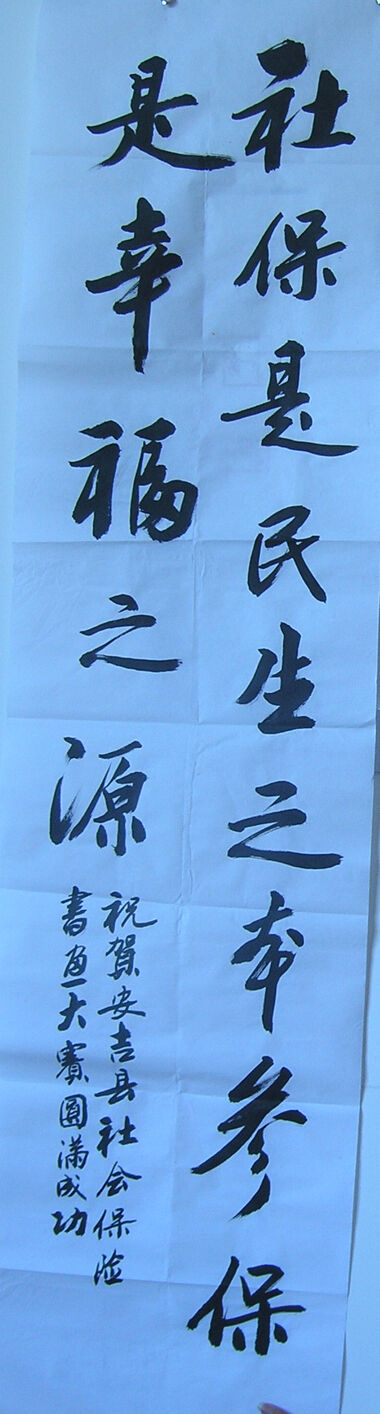 社保是民生之本参保
是幸福之源
祝賀安吉县社会保险
書画大賽圆满成功